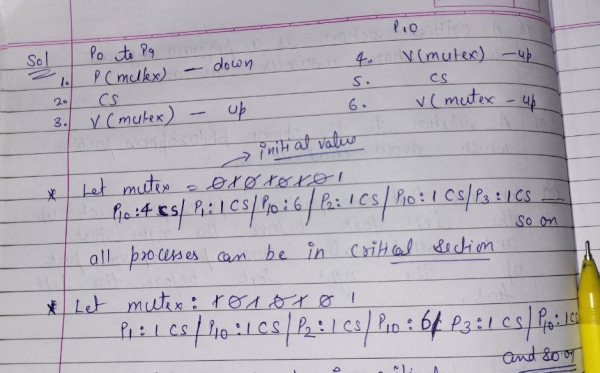 P10
Sol P0 to P9
1. P(mutex) — down 4. V(mutex) — up
2. CS 5. CS
3. V(mutex) — up 6. V(mutex — up
→ initial value
* Let mutex = 0 1 0 1 0 1 0 1
P10:4 CS/ P1:1 CS/ P10:6/ P2:1 CS/ P10:1 CS/ P3:1 CS —
so on
all processes can be in Critical Section
* Let mutex: 1 0 1 0 1 0 1
P1:1 CS/ P10:1 CS/ P2:1 CS/ P10:6/ P3:1 CS/ P10:1CS
and so on